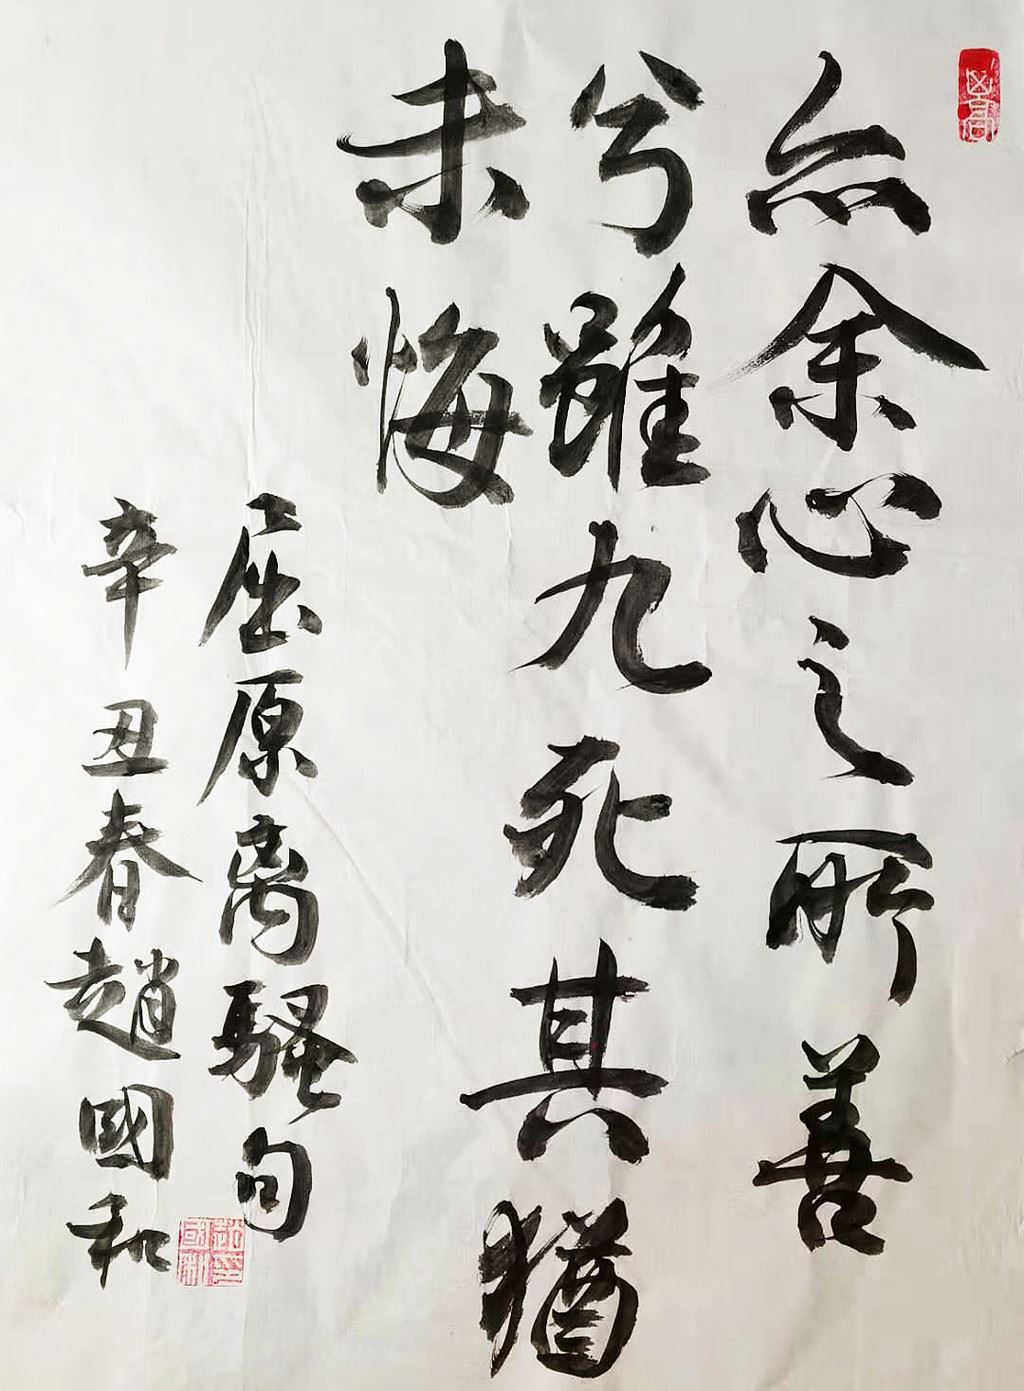 亦余心之所善
兮雖九死其猶
未悔
屈原离騷句
辛丑春趙國和